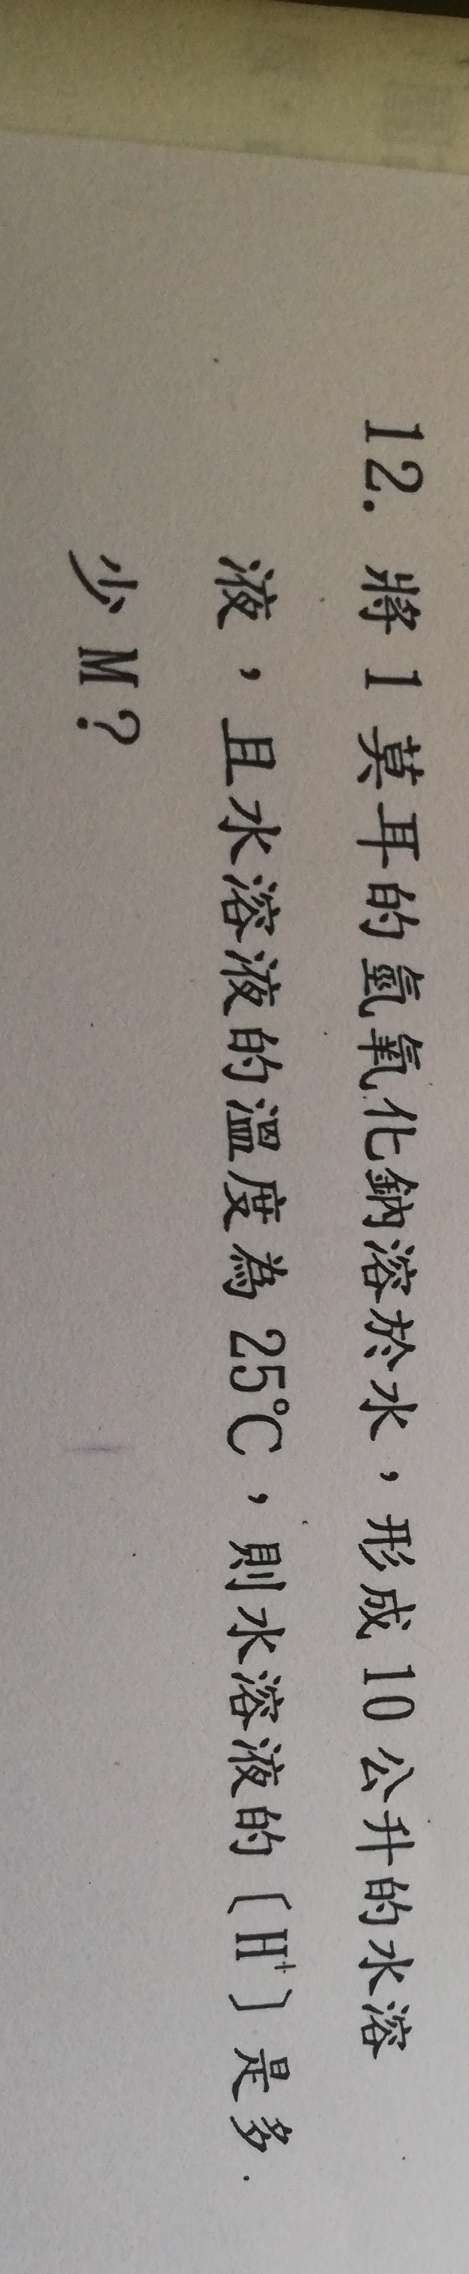 12. 將1莫耳的氫氧化鈉溶於水，形成10公升的水溶
液，且水溶液的溫度為25℃，則水溶液的〔H⁺〕是多
少M？